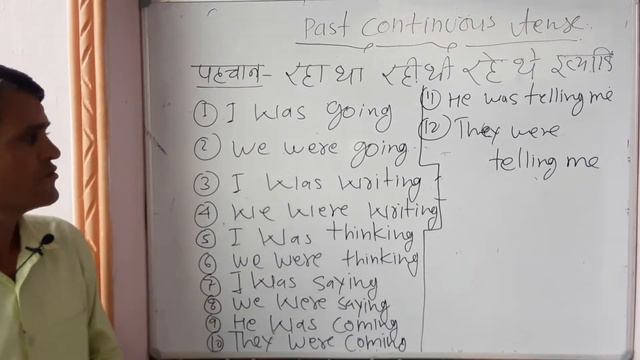 Past Continuous tense.
पहचान- रहा था रही थी रहे थे इत्यादि
① I was going
② We were going.
③ I was writing
④ We were writing
⑤ I was thinking
⑥ we were thinking
⑦ I was saying
⑧ we were saying
⑨ He was coming
⑩ They were coming
⑪ He was telling me
⑫ They were
telling me